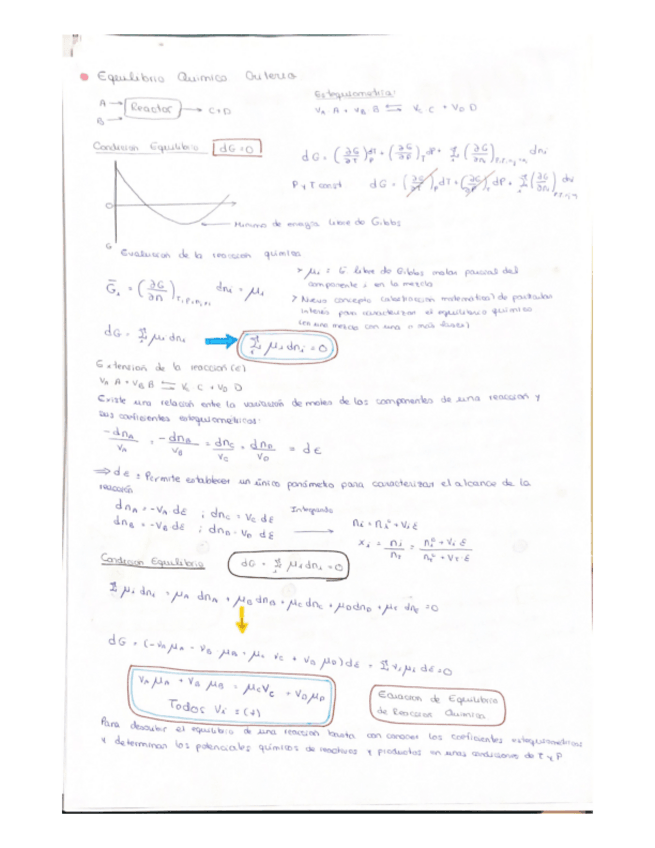 Equilibrio Químico Criterio
A → Reactor → C+D
B →
Estequiometría:
νA A + νB B ⇌ νC C + νD D
Condicion Equilibrio dG=0
dG = (∂G/∂T)P dT + (∂G/∂P)T dP + Σi (∂G/∂ni)T,P,nj≠ni dni
P y T const dG = (∂G/∂T)P dT + (∂G/∂P)T dP + Σi (∂G/∂ni)P,T,nj≠ni dni
0
Minimo de energía libre de Gibbs
G
Evaluacion de la reaccion química
Ḡi = (∂G/∂n)T,P,nj≠ni dni = μi
> μi = G libre de Gibbs molar parcial del
componente i en la mezcla
> Nuevo concepto (abstracción matematica) de particular
interés para caracterizar el equilibrio químico
(en una mezcla con una o más fases)
dG = Σi μi dni
Σi μi dni = 0
Extension de la reaccion (ε)
νA A + νB B ⇌ νC C + νD D
Existe una relacion entre la variacion de moles de los componentes de una reaccion y
sus coeficientes estequiometricos:
-dnA/νA = -dnB/νB = dnC/νC = dnD/νD = dε
⇒ dε = Permite establecer un único parámetro para caracterizar el alcance de la
reacción
dnA = -νA dε ; dnC = νC dε Integrando
dnB = -νB dε ; dnD = νD dε → ni = ni° + νi ε
xi = ni/nT = (ni° + νi ε)/(nT° + νT ε)
Condicion Equilibrio dG = Σi μi dni = 0
Σ μi dni = μA dnA + μB dnB + μC dnC + μD dnD + μE dnE = 0
dG = (-νA μA - νB μB + μC νC + νD μD) dε = Σi νi μi dε = 0
νA μA + νB μB = μC νC + νD μD
Todos νi = (+)
Ecuacion de Equilibrio
de Reaccion Química
Para describir el equilibrio de una reaccion basta con conocer los coeficientes estequiometricos
y determinar los potenciales químicos de reactivos y productos en unas condiciones de T y P